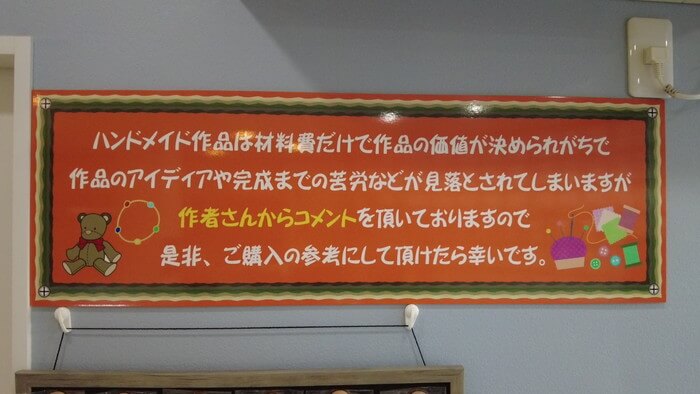 ハンドメイド作品は材料費だけで作品の価値が決められがちで
作品のアイディアや完成までの苦労などが見落とされてしまいますが
作者さんからコメントを頂いておりますので
是非、ご購入の参考にして頂けたら幸いです。